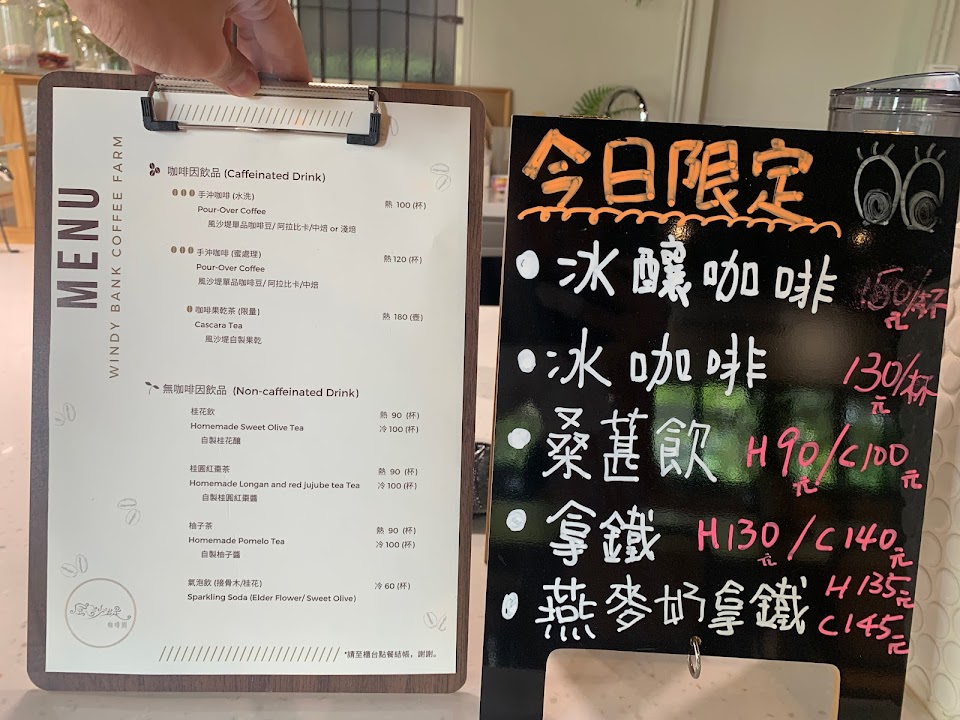 MENU
WINDY BANK COFFEE FARM
咖啡因飲品 (Caffeinated Drink)
手沖咖啡 (水洗)
Pour-Over Coffee 熱 100 (杯)
風沙堤單品咖啡豆/ 阿拉比卡/中焙 or 淺焙
手沖咖啡 (蜜處理)
Pour-Over Coffee 熱 120 (杯)
風沙堤單品咖啡豆/ 阿拉比卡/中焙
咖啡果乾茶 (限量)
Cascara Tea 熱 180 (壺)
風沙堤自製果乾
無咖啡因飲品 (Non-caffeinated Drink)
桂花飲 熱 90 (杯)
Homemade Sweet Olive Tea 冷 100 (杯)
自製桂花釀
桂圓紅棗茶 熱 90 (杯)
Homemade Longan and red jujube tea Tea 冷 100 (杯)
自製桂圓紅棗醬
柚子茶 熱 90 (杯)
Homemade Pomelo Tea 冷 100 (杯)
自製柚子醬
氣泡飲 (接骨木/桂花) 冷 60 (杯)
Sparkling Soda (Elder Flower/ Sweet Olive)
*請至櫃台點餐結帳，謝謝。
風沙堤
咖啡園
今日限定
冰釀咖啡 150元/杯
冰咖啡 130元/杯
桑葚飲 H90元/C100元
拿鐵 H130元/C140元
燕麥奶拿鐵 H135元
C145元